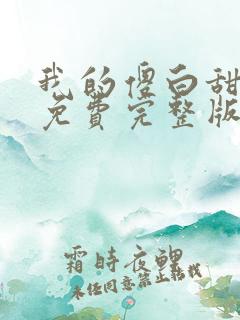 我的傻白甜
免費完整版
霜時夜鯉
未经同意禁止転載